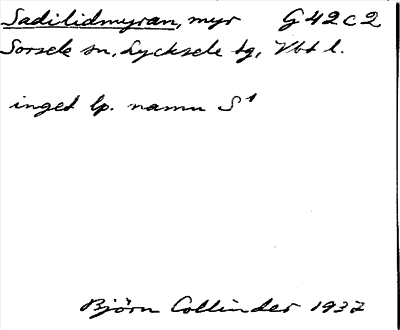 Sadilidmyran, myr G 42 c 2
Sorsele sn, Lycksele tg, Vbt l.
inget lp. namn S¹
Björn Collinder 1937